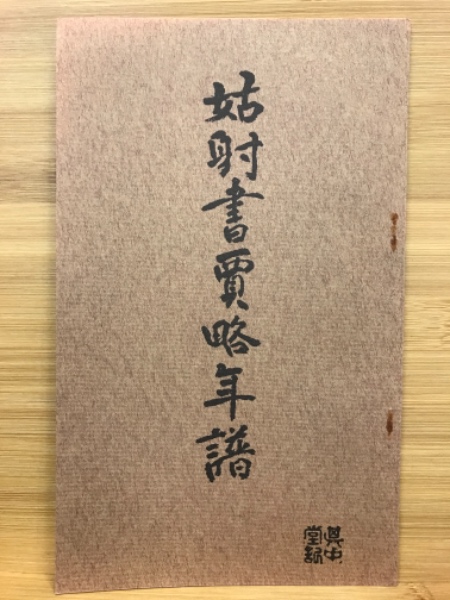 姑射書賈略年譜
其中
堂記